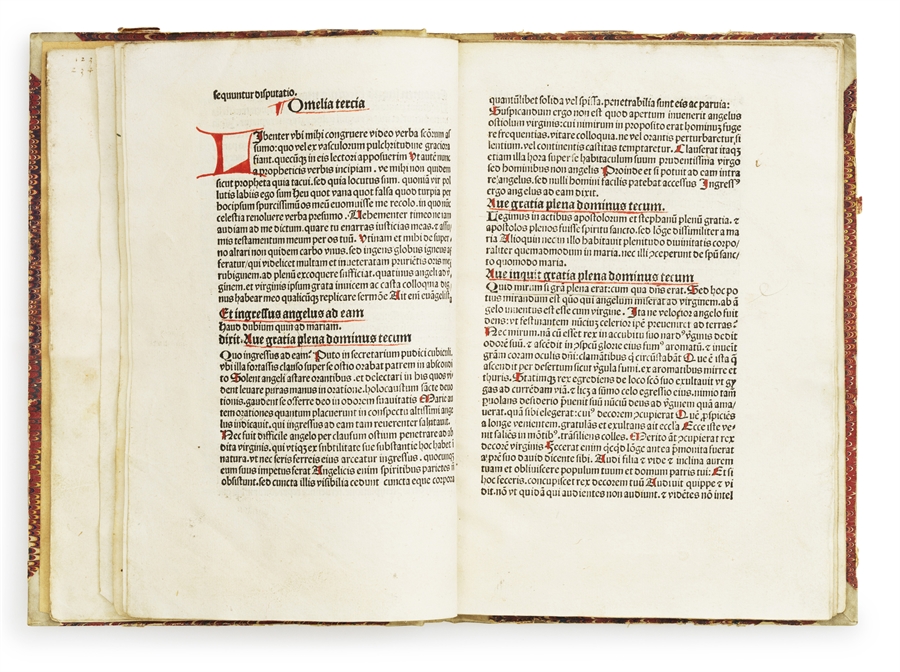 sequuntur disputatio.
Omelia tercia
Libenter vbi mihi congruere video verba scōrum af
sumo: quo vel ex vasculorum pulchritudine graciora
fiant. quecūq̄ in eis lectori apposuerim Vt autē nunc
a propheticis verbis incipiam. ve mihi non quidem
sicut propheta quia tacui. sed quia locutus sum. quoniā vir pol
lutis labiis ego sum Heu quot vana quot falsa quot turpia per
hoc ipsum spurcissimū os meū euomuisse me recolo. in quo nūc
celestia renoluere verba presumo. Vehementer timeo ne iam
audiam ad me dictum. quare tu enarras iusticias meas. et assu
mis testamentum meum per os tuū. Vtinam et mihi de super,
no altari non quidem carbo vnus. sed ingens globus igneus af
feratur/ qui videlicet multam et in
rubiginem. ad plenū excoquere sufficiat. quatinus angeli ad v̄
ginem. et virginis ipsum grata inuicem ac casta colloquia dig
nus habear meo qualicūq̄ replicare sermōe Ait em̄ euāgelista
Et ingressus angelus ad eam
haud dubium quin ad mariam.
dixit. Aue gratia plena dominus tecum
Quo ingressus ad eam? Puto in secretarium pudici cubiculi.
vbi illa fortassis clauso super se ostio orabat patrem in abscondi
to Solent angeli astare orantibus. et delectari in his quos vi
dent leuare puras manus in oratione. holocaustum sācte deuo
tionis. gaudent se offerre deo in odorem suauitatis Marie au
tem orationes quantum placuerunt in conspectu altissimi ange
lus indicauit. qui ingressus ad eam tam reuerenter salutauit.
Nec fuit difficile angelo per clausum ostium penetrare ad ab
dita virginis. qui vtiq̄ ex subtilitate sue substantie hoc habet in
natura. vt nec seris ferreis eius arceatur ingressus. quocunq̄
eum suus impetus ferat Angelicis enim spiritibus parietes nō
obsistunt. sed cuncta illis visibilia cedunt cuncta eque corpora
quantūlibet solida vel spissa. penetrabilia sunt eis ac paruia:
Suspicandum ergo non est quod apertum inuenerit angelus
ostiolum virginis: cui nimirum in proposito erat hominū fuge
re frequentias. vitare colloquia. ne vel orantis perturbaretur si
lentium. vel continentis castitas temptaretur. Clauserat itaq̄
etiam illa hora super se habitaculum suum prudentissima virgo
sed hominibus non angelis Proinde et si potuit ad eam intra
re angelus. sed nulli homini facilis patebat accessus Ingress9
ergo angelus ad eam dixit.
Aue gratia plena dominus tecum.
Legimus in actibus apostolorum et stephanū plenū gratia. et
apostolos plenos fuisse spiritu sancto. sed lōge dissimiliter a ma
ria Alioquin nec in illo habitauit plenitudo diuinitatis corpo/
raliter quemadmodum in maria. nec illi ɔceperunt de spū sanc/
to quomodo maria.
Aue inquit gratia plena dominus tecum
Quid mirum si grā plena erat: cum qua dn̄s erat. Sed hoc po
tius mirandum est quo qui angelum miserat ad virginem. ab ā
gelo inuentus est esse cum virgine. Ita ne velocior angelo fuit
deus: vt festinantem nūciū celerior ip̄e preueniret ad terras?
Nec mirum. nā cū esset rex in accubitu suo nard9 v̄ginis dedit
odorē suū. et ascēdit in ɔspcū glorie eius fum9 aromatū. et inueīt
grām coram oculis dn̄i: clamātibus q̄ circūstabāt Que ē ista q̄
ascendit per desertum sicut v̄gula fumi. ex aromatibus mirre et
thuris. Statimq̄ rex egrediens de loco scō suo exultauit vt gy
gas ad currēdam viā. et licz a sūmo celo egressio eius. nimio tam
puolans desiderio puenit suū nūciū deus ad v̄ginem quā ama/
uerat. quā sibi elegerat: cui9 decorem ɔcupierat Quē ꝓspiciēs
a longe venientem. gratulās et exultans ait eccl̄a Ecce iste ve/
nit saliēs in mōtib9. trāsiliens colles. Merito aūt ɔcupierat rex
decorē virginis Fecerat enim q̄cq̄d lōge antea p̄monita fuerat
a p̄re suo dauid dicente sibi. Audi filia et vide et inclina aurem
tuam et obliuiscere populum tuum et domum patris tui: Et si
hoc feceris. concupiscet rex decorem tuū Audiuit quippe et vi
dit. nō vt quidā qui audientes non audiunt. et vidētes nō intel